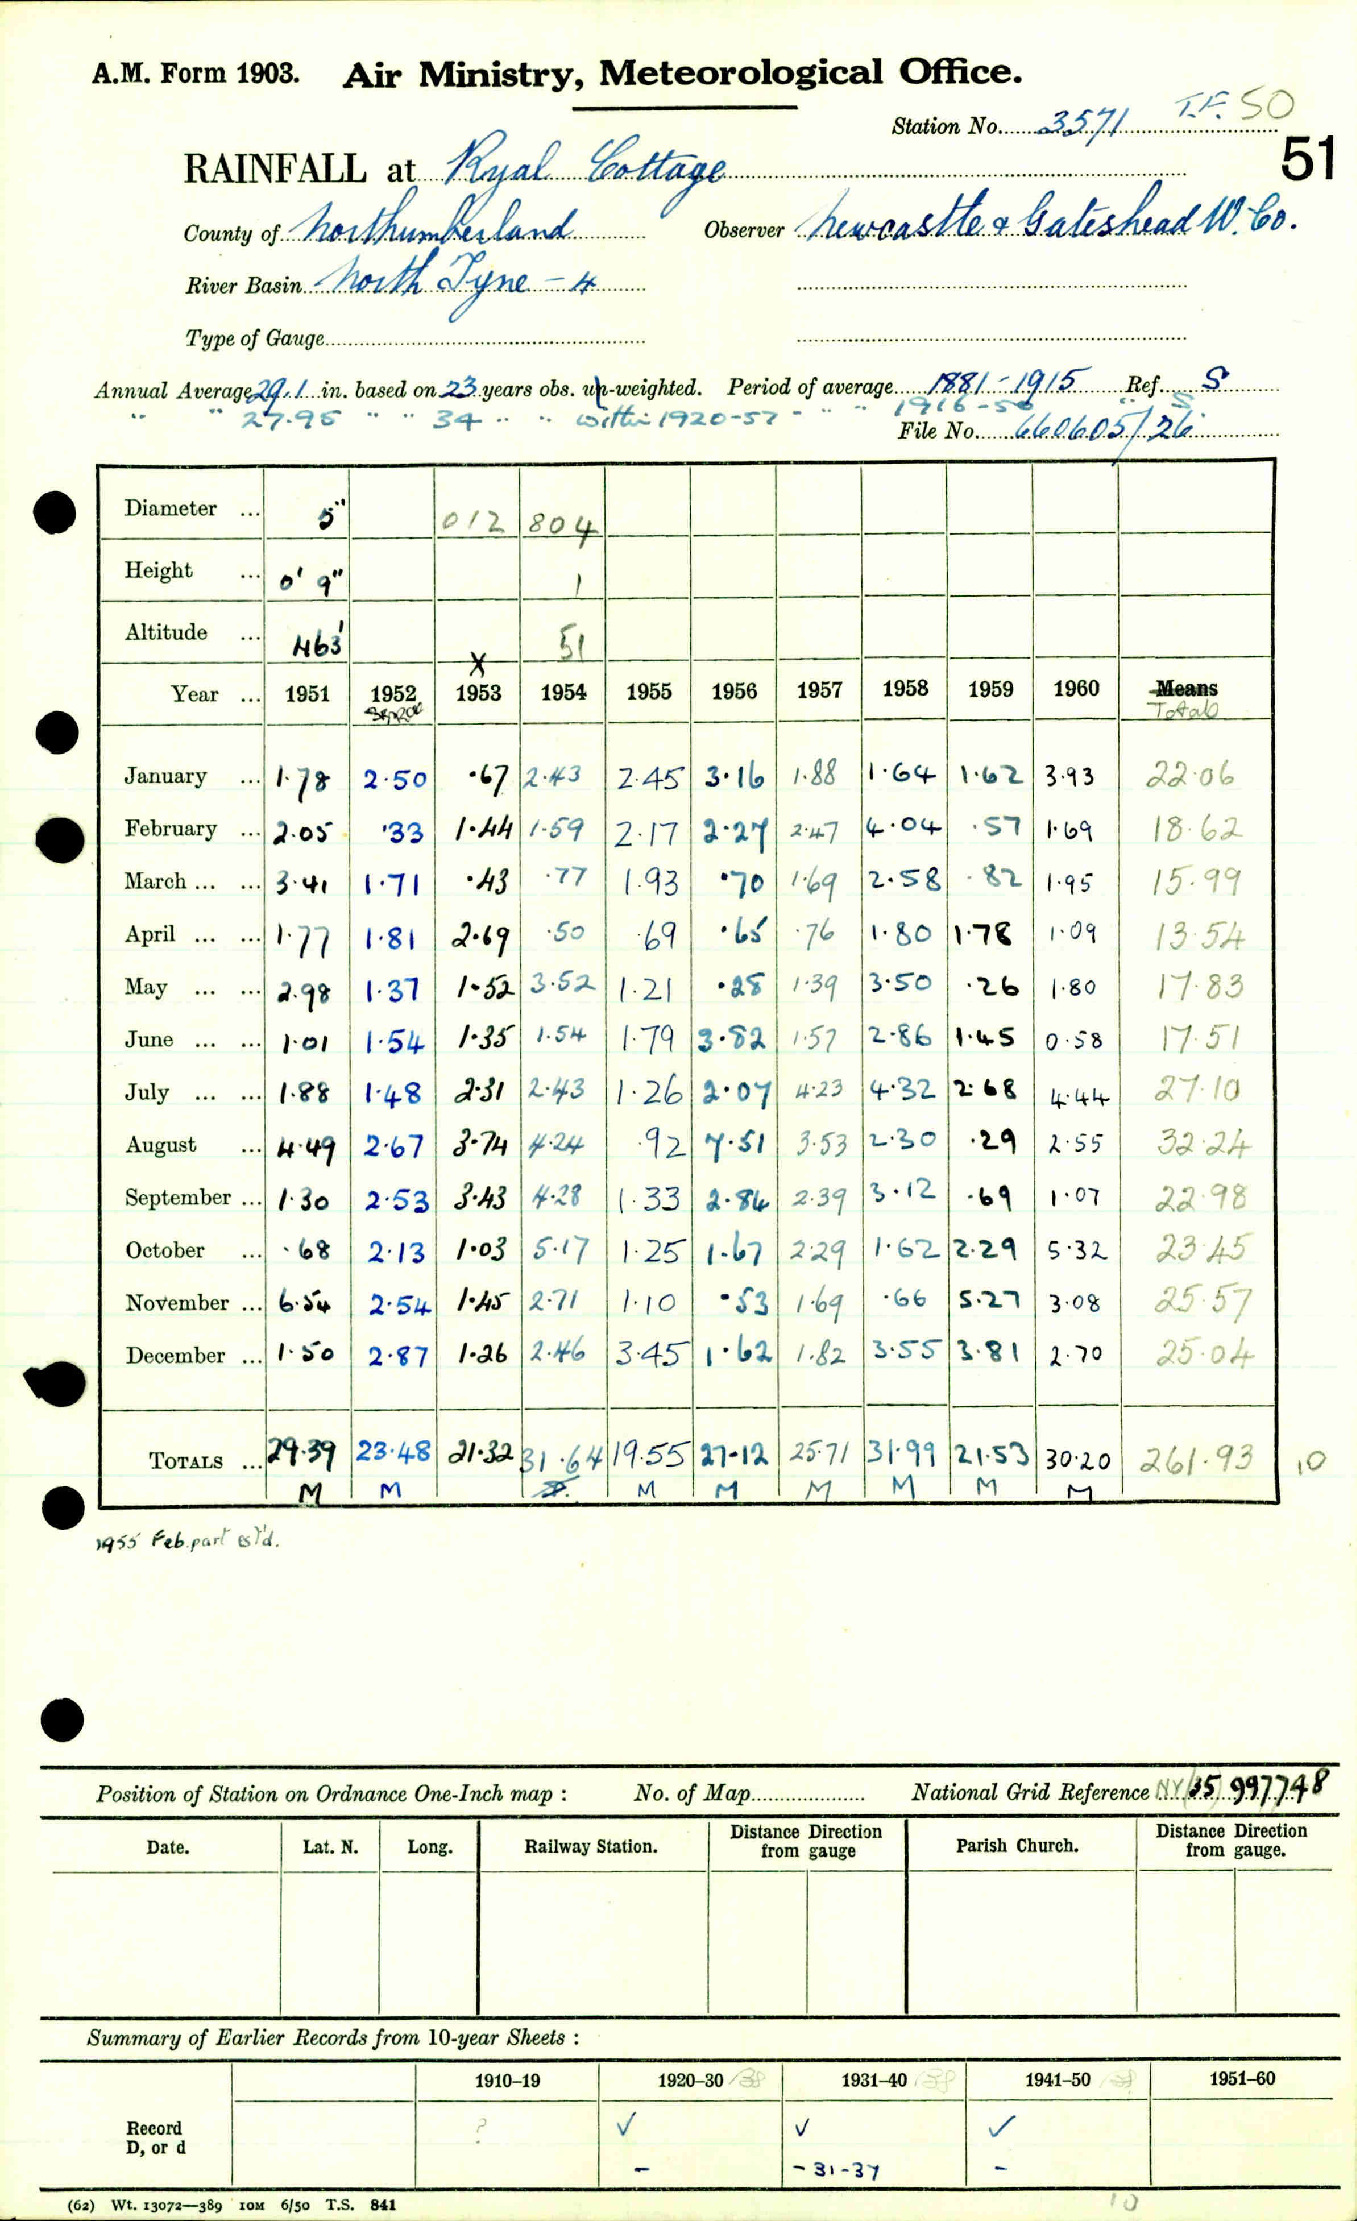 A.M. Form 1903. Air Ministry, Meteorological Office.
Station No. 3571 I.F. 50
51
RAINFALL at Ryal Cottage
County of Northumberland Observer Newcastle & Gateshead W. Co.
River Basin North Tyne - 4
Type of Gauge
Annual Average 29.1 in. based on 23 years obs. un-weighted. Period of average 1881-1915 Ref. S
" " 27.95 " " 34 " " within 1920-57 - " " 1916-50 " S
File No. 660605/26
Diameter ... 5" 012 804
Height ... 0' 9" 1
Altitude ... 463' 51
X
Year ... 1951 1952 1953 1954 1955 1956 1957 1958 1959 1960 Means
Total
January ... 1.78 2.50 .67 2.43 2.45 3.16 1.88 1.64 1.62 3.93 22.06
February ... 2.05 .33 1.44 1.59 2.17 2.27 2.47 4.04 .57 1.69 18.62
March ... ... 3.41 1.71 .43 .77 1.93 .70 1.69 2.58 .82 1.95 15.99
April ... ... 1.77 1.81 2.69 .50 .69 .65 .76 1.80 1.78 1.09 13.54
May ... ... 2.98 1.37 1.52 3.52 1.21 .28 1.39 3.50 .26 1.80 17.83
June ... ... 1.01 1.54 1.35 1.54 1.79 3.82 1.57 2.86 1.45 0.58 17.51
July ... ... 1.88 1.48 2.31 2.43 1.26 2.07 4.23 4.32 2.68 4.44 27.10
August ... 4.49 2.67 3.74 4.24 .92 7.51 3.53 2.30 .29 2.55 32.24
September ... 1.30 2.53 3.43 4.28 1.33 2.84 2.39 3.12 .69 1.07 22.98
October ... .68 2.13 1.03 5.17 1.25 1.67 2.29 1.62 2.29 5.32 23.45
November ... 6.54 2.54 1.45 2.71 1.10 .53 1.69 .66 5.27 3.08 25.57
December ... 1.50 2.87 1.26 2.46 3.45 1.62 1.82 3.55 3.81 2.70 25.04
TOTALS ... 29.39 23.48 21.32 31.64 19.55 27.12 25.71 31.99 21.53 30.20 261.93 10
M M M M M M M M
1955 Feb. part est'd.
Position of Station on Ordnance One-Inch map : No. of Map National Grid Reference NY (35) 997748
Date. Lat. N. Long. Railway Station. Distance Direction from gauge Parish Church. Distance Direction from gauge.
Summary of Earlier Records from 10-year Sheets :
1910–19 1920–30 1931–40 1941–50 1951–60
Record ? ✓ ✓ ✓
D, or d - - 31-37 -
(62) Wt. 13072—389 10M 6/50 T.S. 841
10